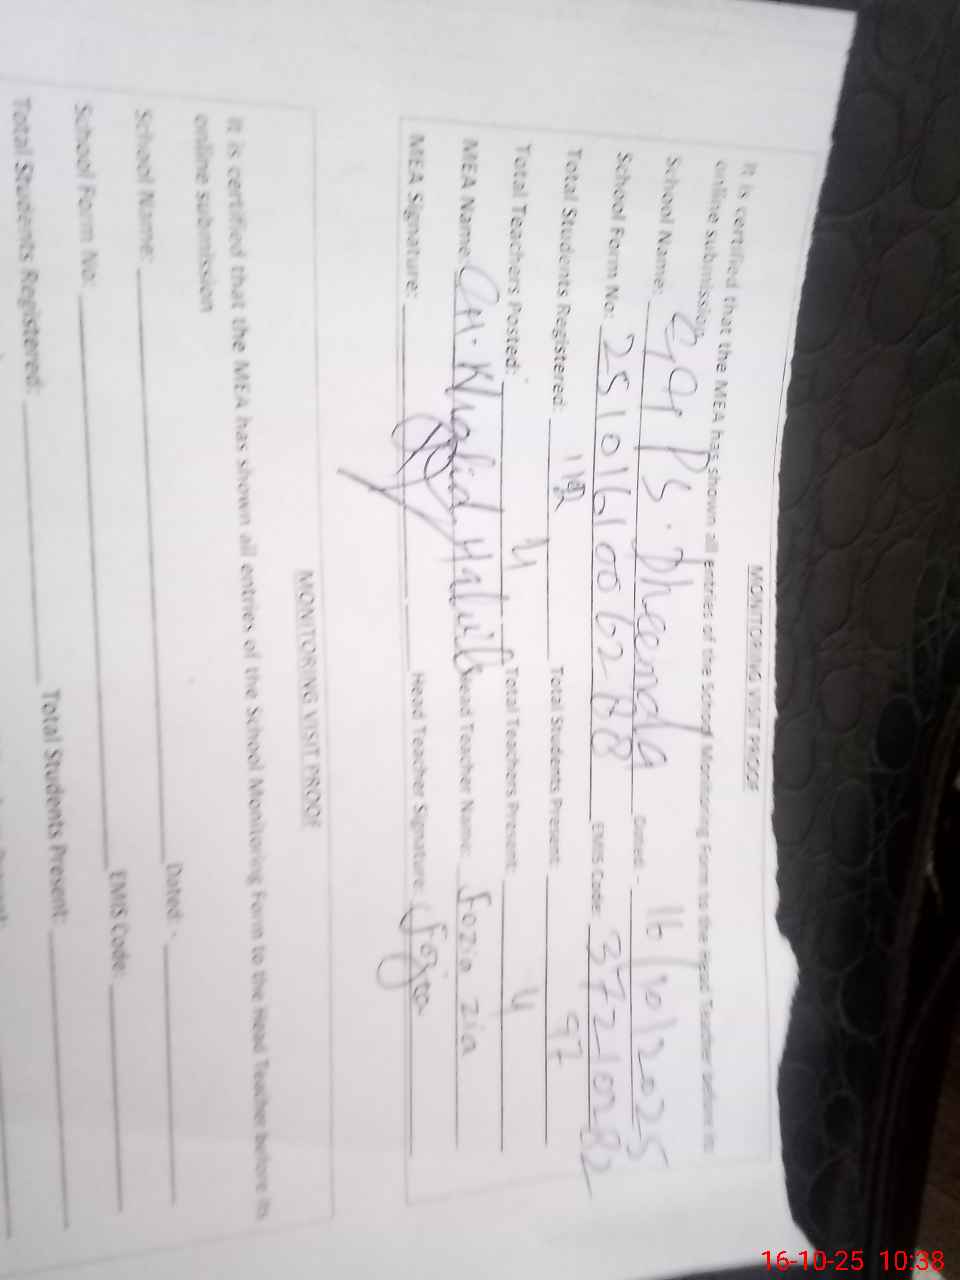 MONITORING VISIT PROOF
It is certified that the MEA has shown all entries of the School Monitoring Form to the Head Teacher before its
online submission
School Name: GGPS. Dheenda Dated: - 16/10/2025
School Form No: EMIS Code: 37210182
Total Students Registered: Total Students Present: 97
Total Teachers Posted: 4 Total Teachers Present: 4
MEA Name: CH. Khalid Head Teacher Name: Fozia Zia
MEA Signature: Head Teacher Signature: Fozia
MONITORING VISIT PROOF
It is certified that the MEA has shown all entries of the School Monitoring Form to the Head Teacher before its
online submission
School Name: Dated: -
School Form No: EMIS Code:
Total Students Registered: Total Students Present:
16-10-25 10:38